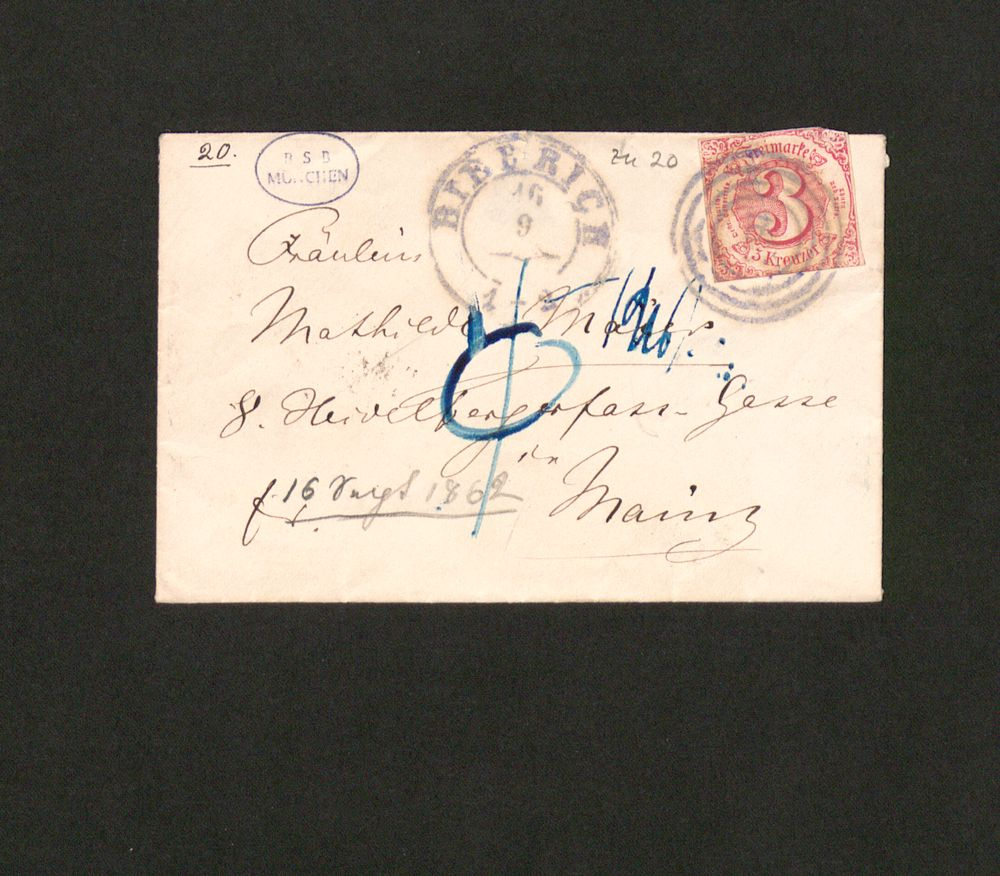 20.
BSB
MÜNCHEN
BIEBRICH
16
9
Zu 20
Freimarke
3
3 Kreuzer
Fräulein
Mathilde Maier
8. Heidelbergerfass-Gasse
in
Mainz
16 Sept 1862